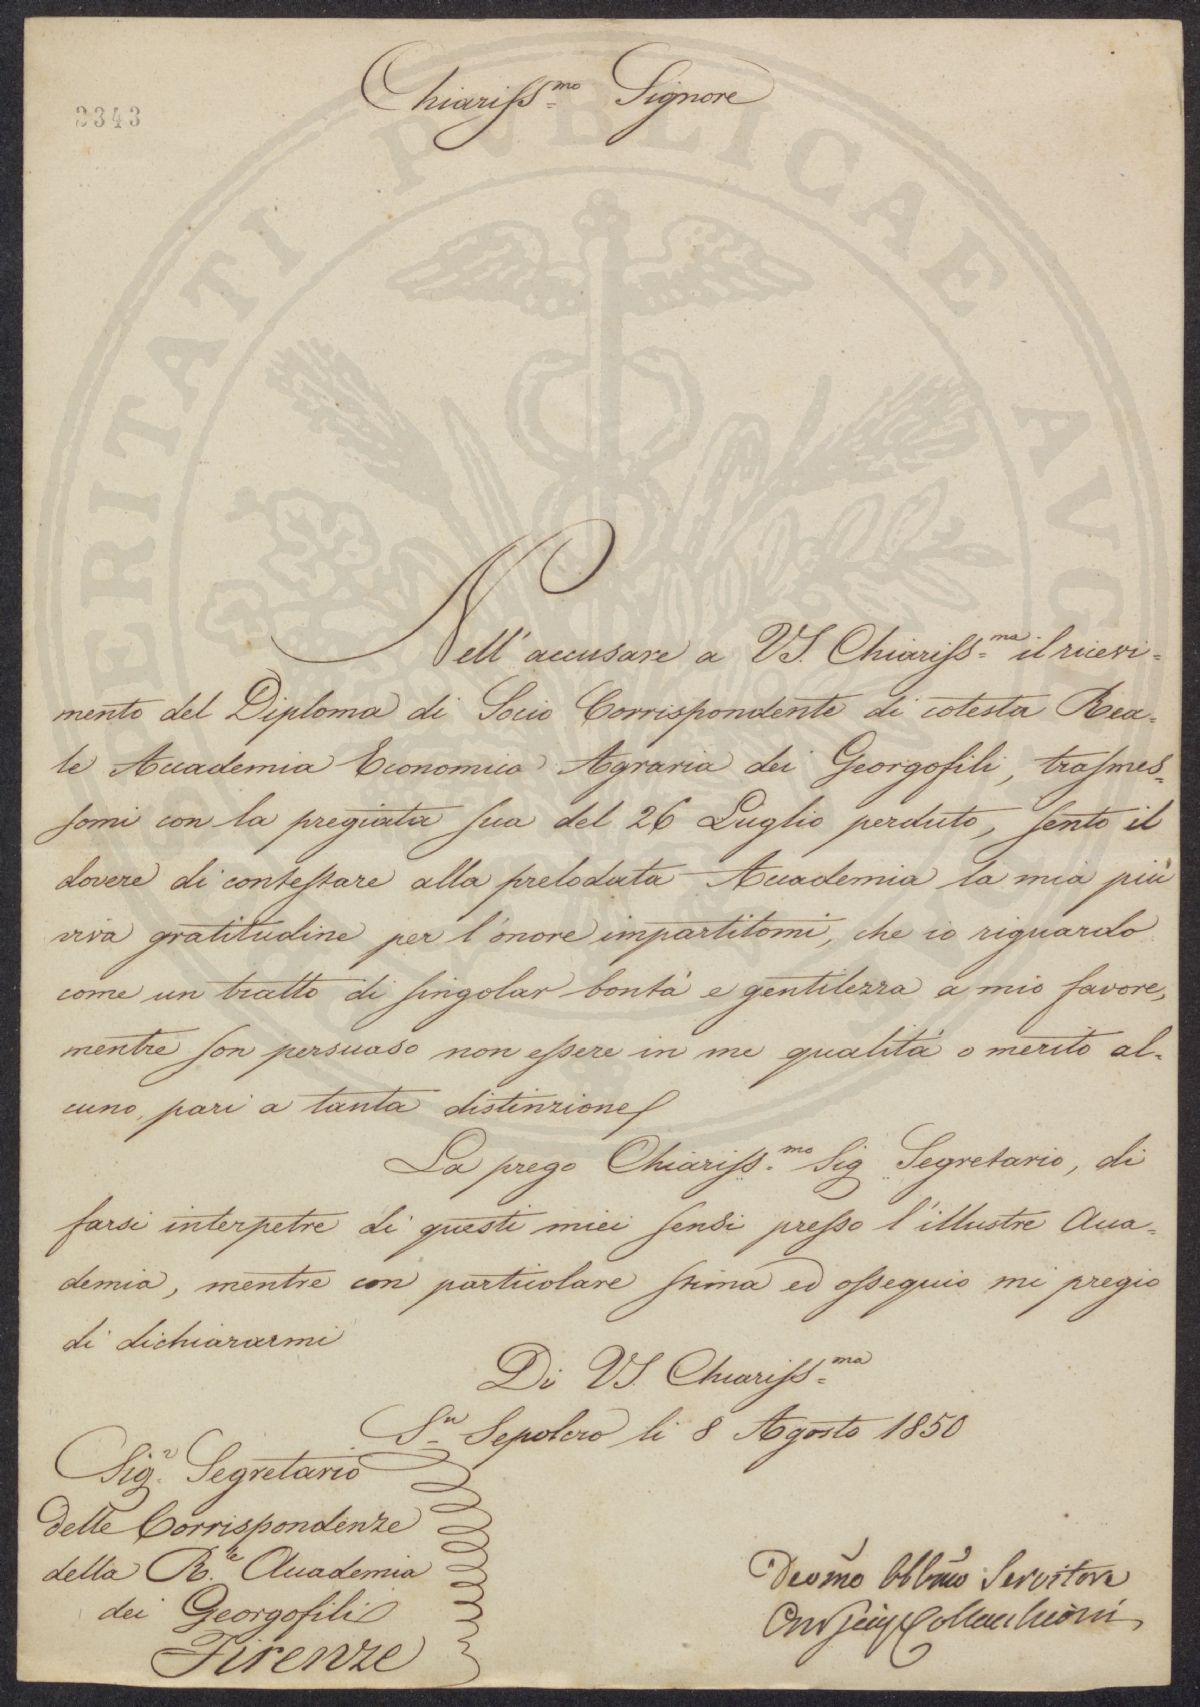 Chiariss.mo Signore
2343
PROSPERITATI PUBLICAE AUGENDAE
Nell'accusare a VS. Chiariss.ma il ricevi=
mento del Diploma di Socio Corrispondente di cotesta Rea=
le Accademia Economico Agraria dei Georgofili, trasmes=
somi con la pregiata sua del 26 Luglio perduto, sento il
dovere di contestare alla prelodata Accademia la mia più
viva gratitudine per l'onore impartitomi, che io riguardo
come un tratto di singolar bontà e gentilezza a mio favore,
mentre son persuaso non essere in me qualità o merito al=
cuno, pari a tanta distinzione
La prego Chiariss.mo Sig. Segretario, di
farsi interpetre di questi miei sensi presso l'illustre Acca=
demia, mentre con particolare stima ed ossequio mi pregio
di dichiararmi
Di VS. Chiariss.ma
S.n Sepolcro li 8 Agosto 1850
Sig.r Segretario
delle Corrispondenze
della R.le Accademia
dei Georgofili
Firenze
Devõmo Obbmo Servitore
Collacchioni